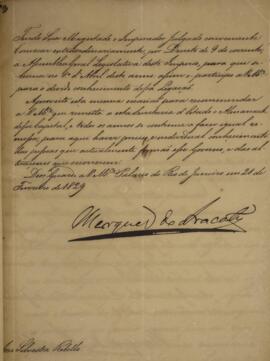 Tendo Sua Magestade o Imperador julgado conveniente
Convocar extraordinariamente, por Decreto de 9 do corrente,
a Assemblea Geral Legislativa deste Imperio, para que se
reuna no 1º d'Abril deste anno; assim o participo a V. Mce.
para o devido conhecimento dessa Legação.
Aproveito esta mesma occasião para recommendar
a V. Mce. que remetta a esta Secretaria d'Estado o Almanack
dessa Capital, e todos os annos se continue a fazer igual re-
messa, para aqui haver preciso conhecimento
das pessoas que actualmente formão esse Governo, e das al-
terações que occorrerem.
Deos Guarde a V. Mce. Palacio do Rio de Janeiro em 21 de
Fevereiro de 1829
Marquez do Aracaty
Silvestre Rebello